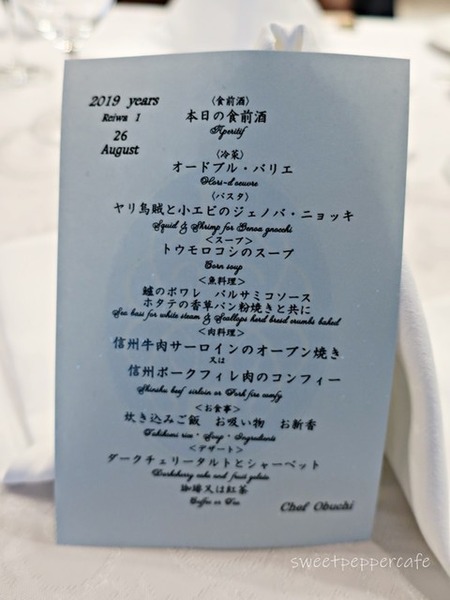 2019 years
Reiwa 1
26
August
〈食前酒〉
本日の食前酒
Aperitif
〈冷菜〉
オードブル・バリエ
Hors-d'oeuvre
〈パスタ〉
ヤリ烏賊と小エビのジェノバ・ニョッキ
Squid & Shrimp for Genoa gnocchi
<スープ>
トウモロコシのスープ
Corn soup
<魚料理>
鱸のポワレ バルサミコソース
ホタテの香草パン粉焼きと共に
Sea bass for white steam & Scallops herd bread crumbs baked
<肉料理>
信州牛肉サーロインのオーブン焼き
又は
信州ポークフィレ肉のコンフィー
Shinshu beef sirloin or Pork fire comfy
<お食事>
炊き込みご飯 お吸い物 お新香
Takikomi rice・Soup・Ingredients
<デザート>
ダークチェリータルトとシャーベット
Darkcherry cake and fruit gelato
珈琲又は紅茶
Coffee or Tea
Chef Obuchi
sweetpeppercafe